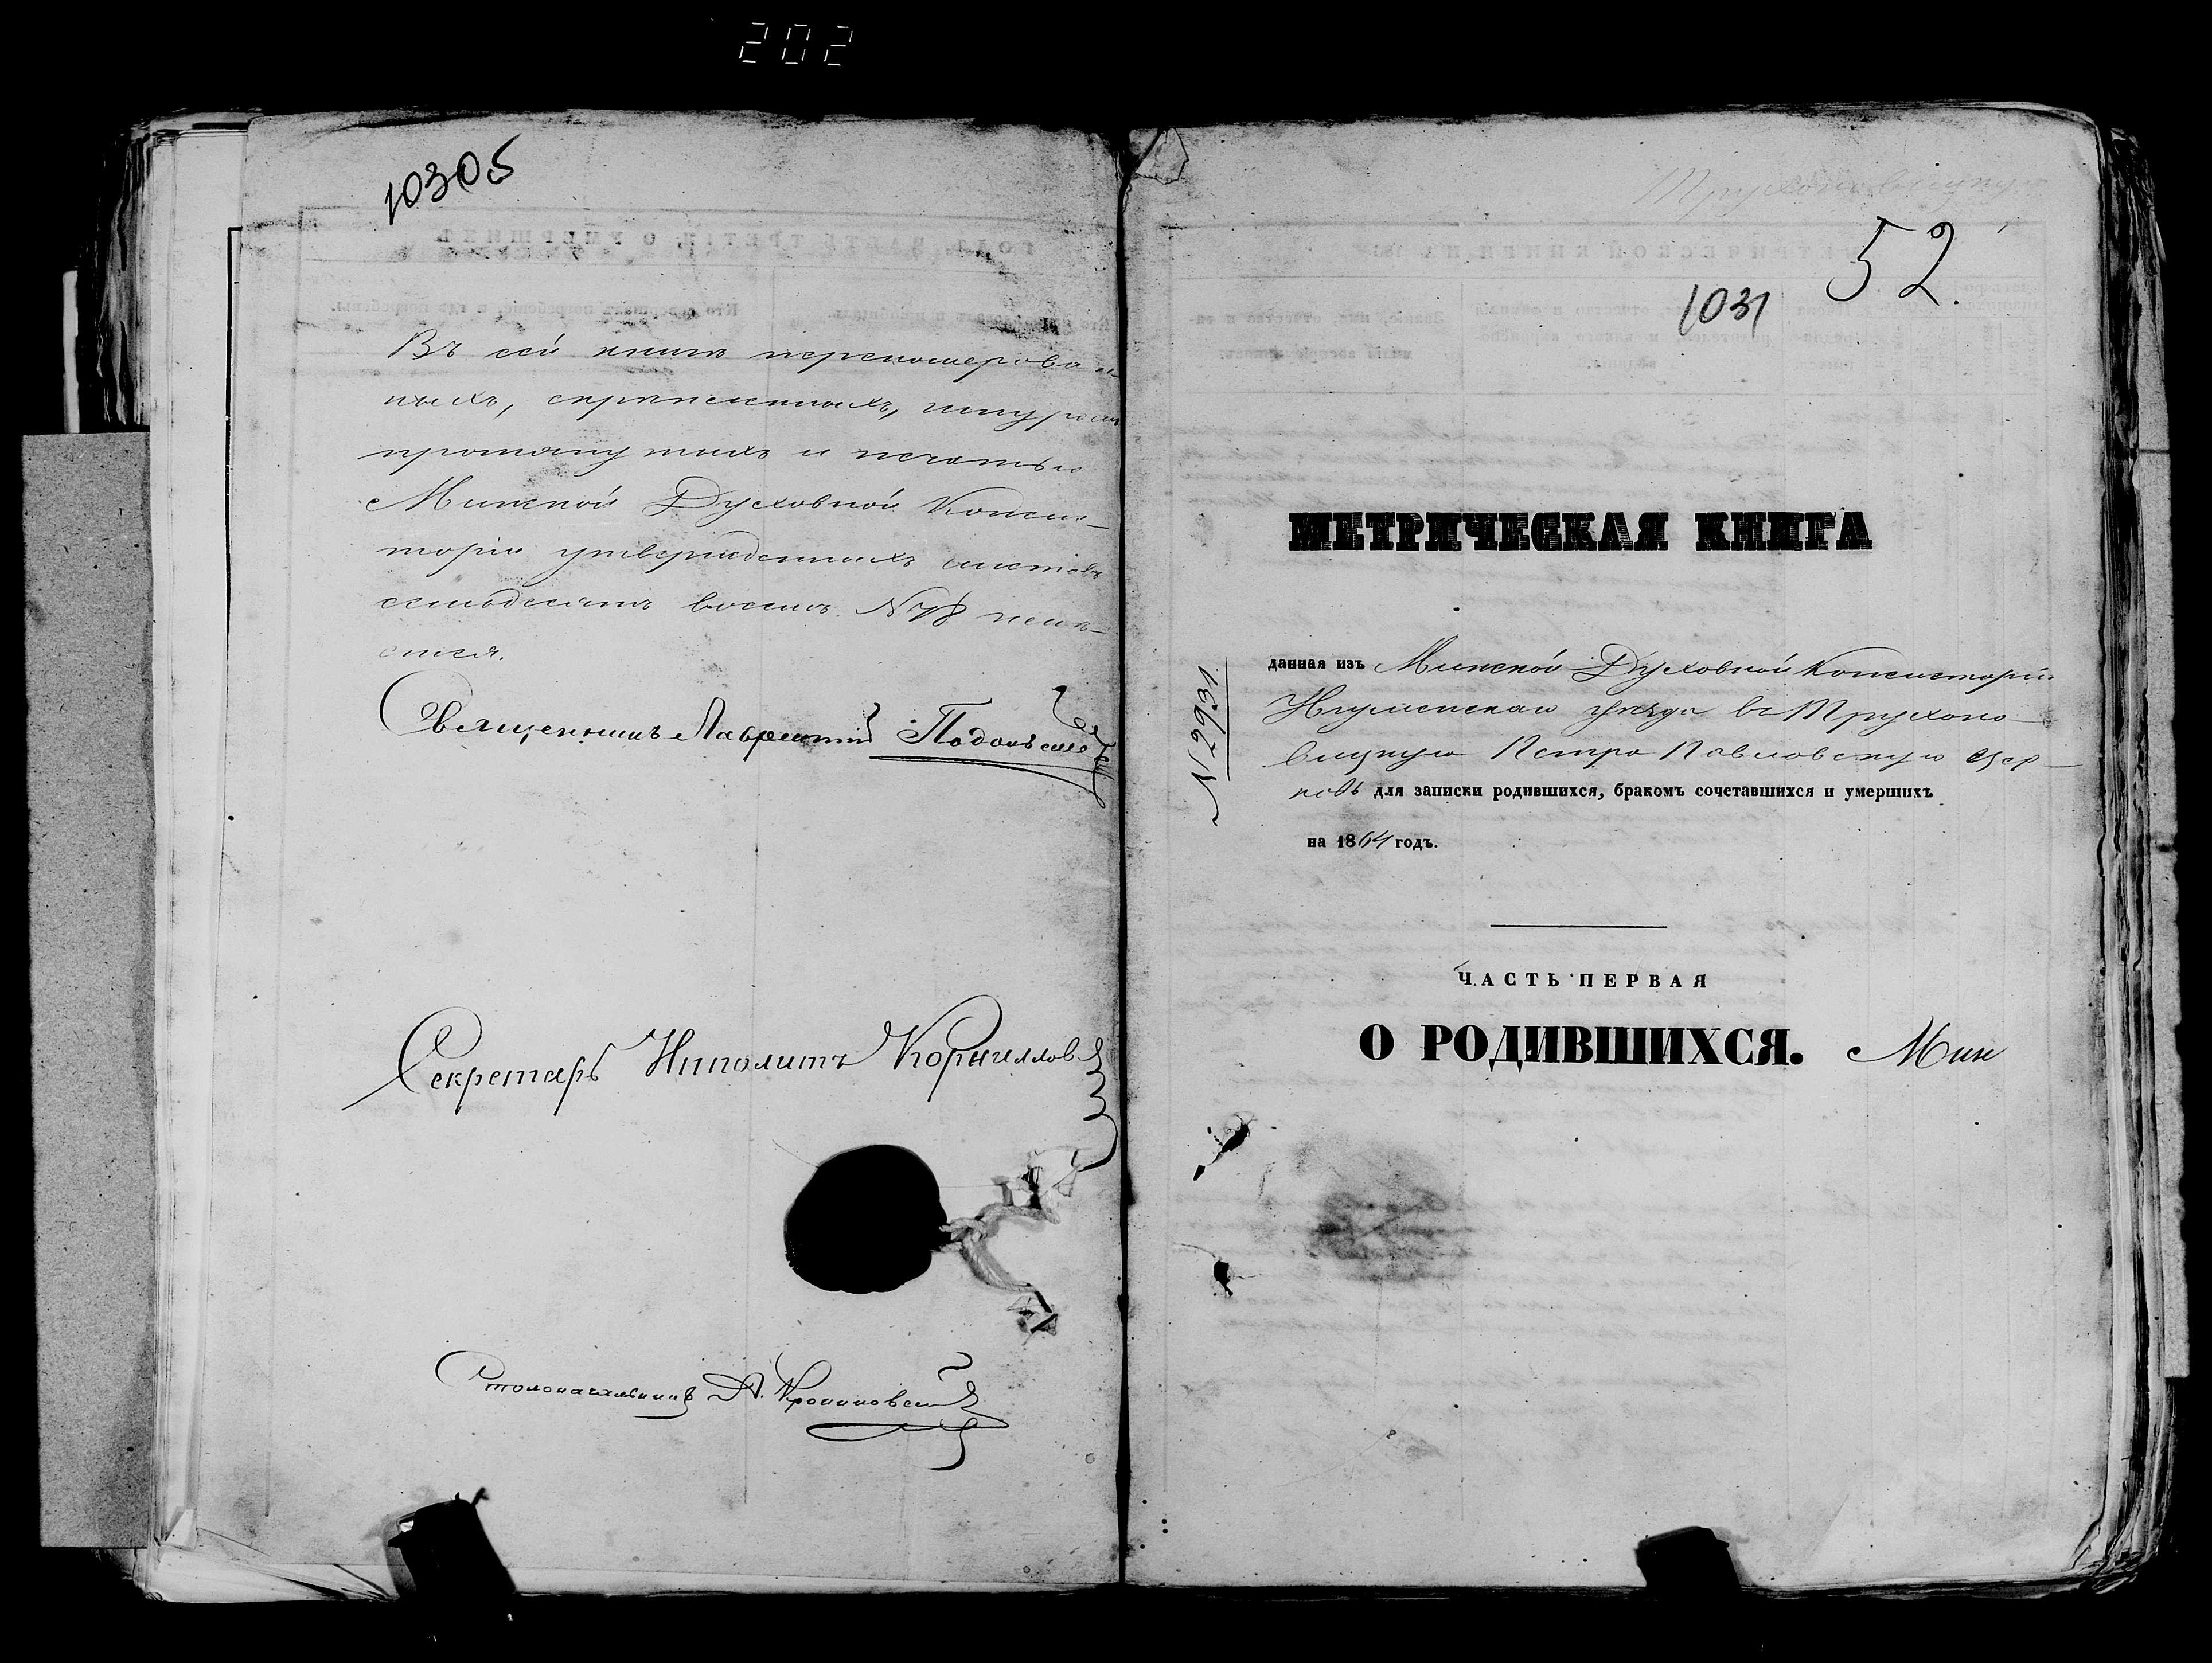 202
10305
Въ сей книгѣ перенумерован-
ныхъ, скрѣпленныхъ, шнуромъ
протянутыхъ и печатью
Минской Духовной Консис-
торіи утвержденныхъ листовъ
семьдесятъ восемь № 78 имѣ-
ется.
Священникъ Лаврентій
Секретарь Ипполитъ Корниллов
Столоначальникъ А.
52.
1031
МЕТРИЧЕСКАЯ КНИГА
данная изъ Минской Духовной Консисторіи
Игуменскаго уѣзда въ Трухоно-
вицкую Петро Павловскую Цер-
ковь для записки родившихся, бракомъ сочетавшихся и умершихъ
на 1864 годъ.
ЧАСТЬ ПЕРВАЯ
О РОДИВШИХСЯ. Мин